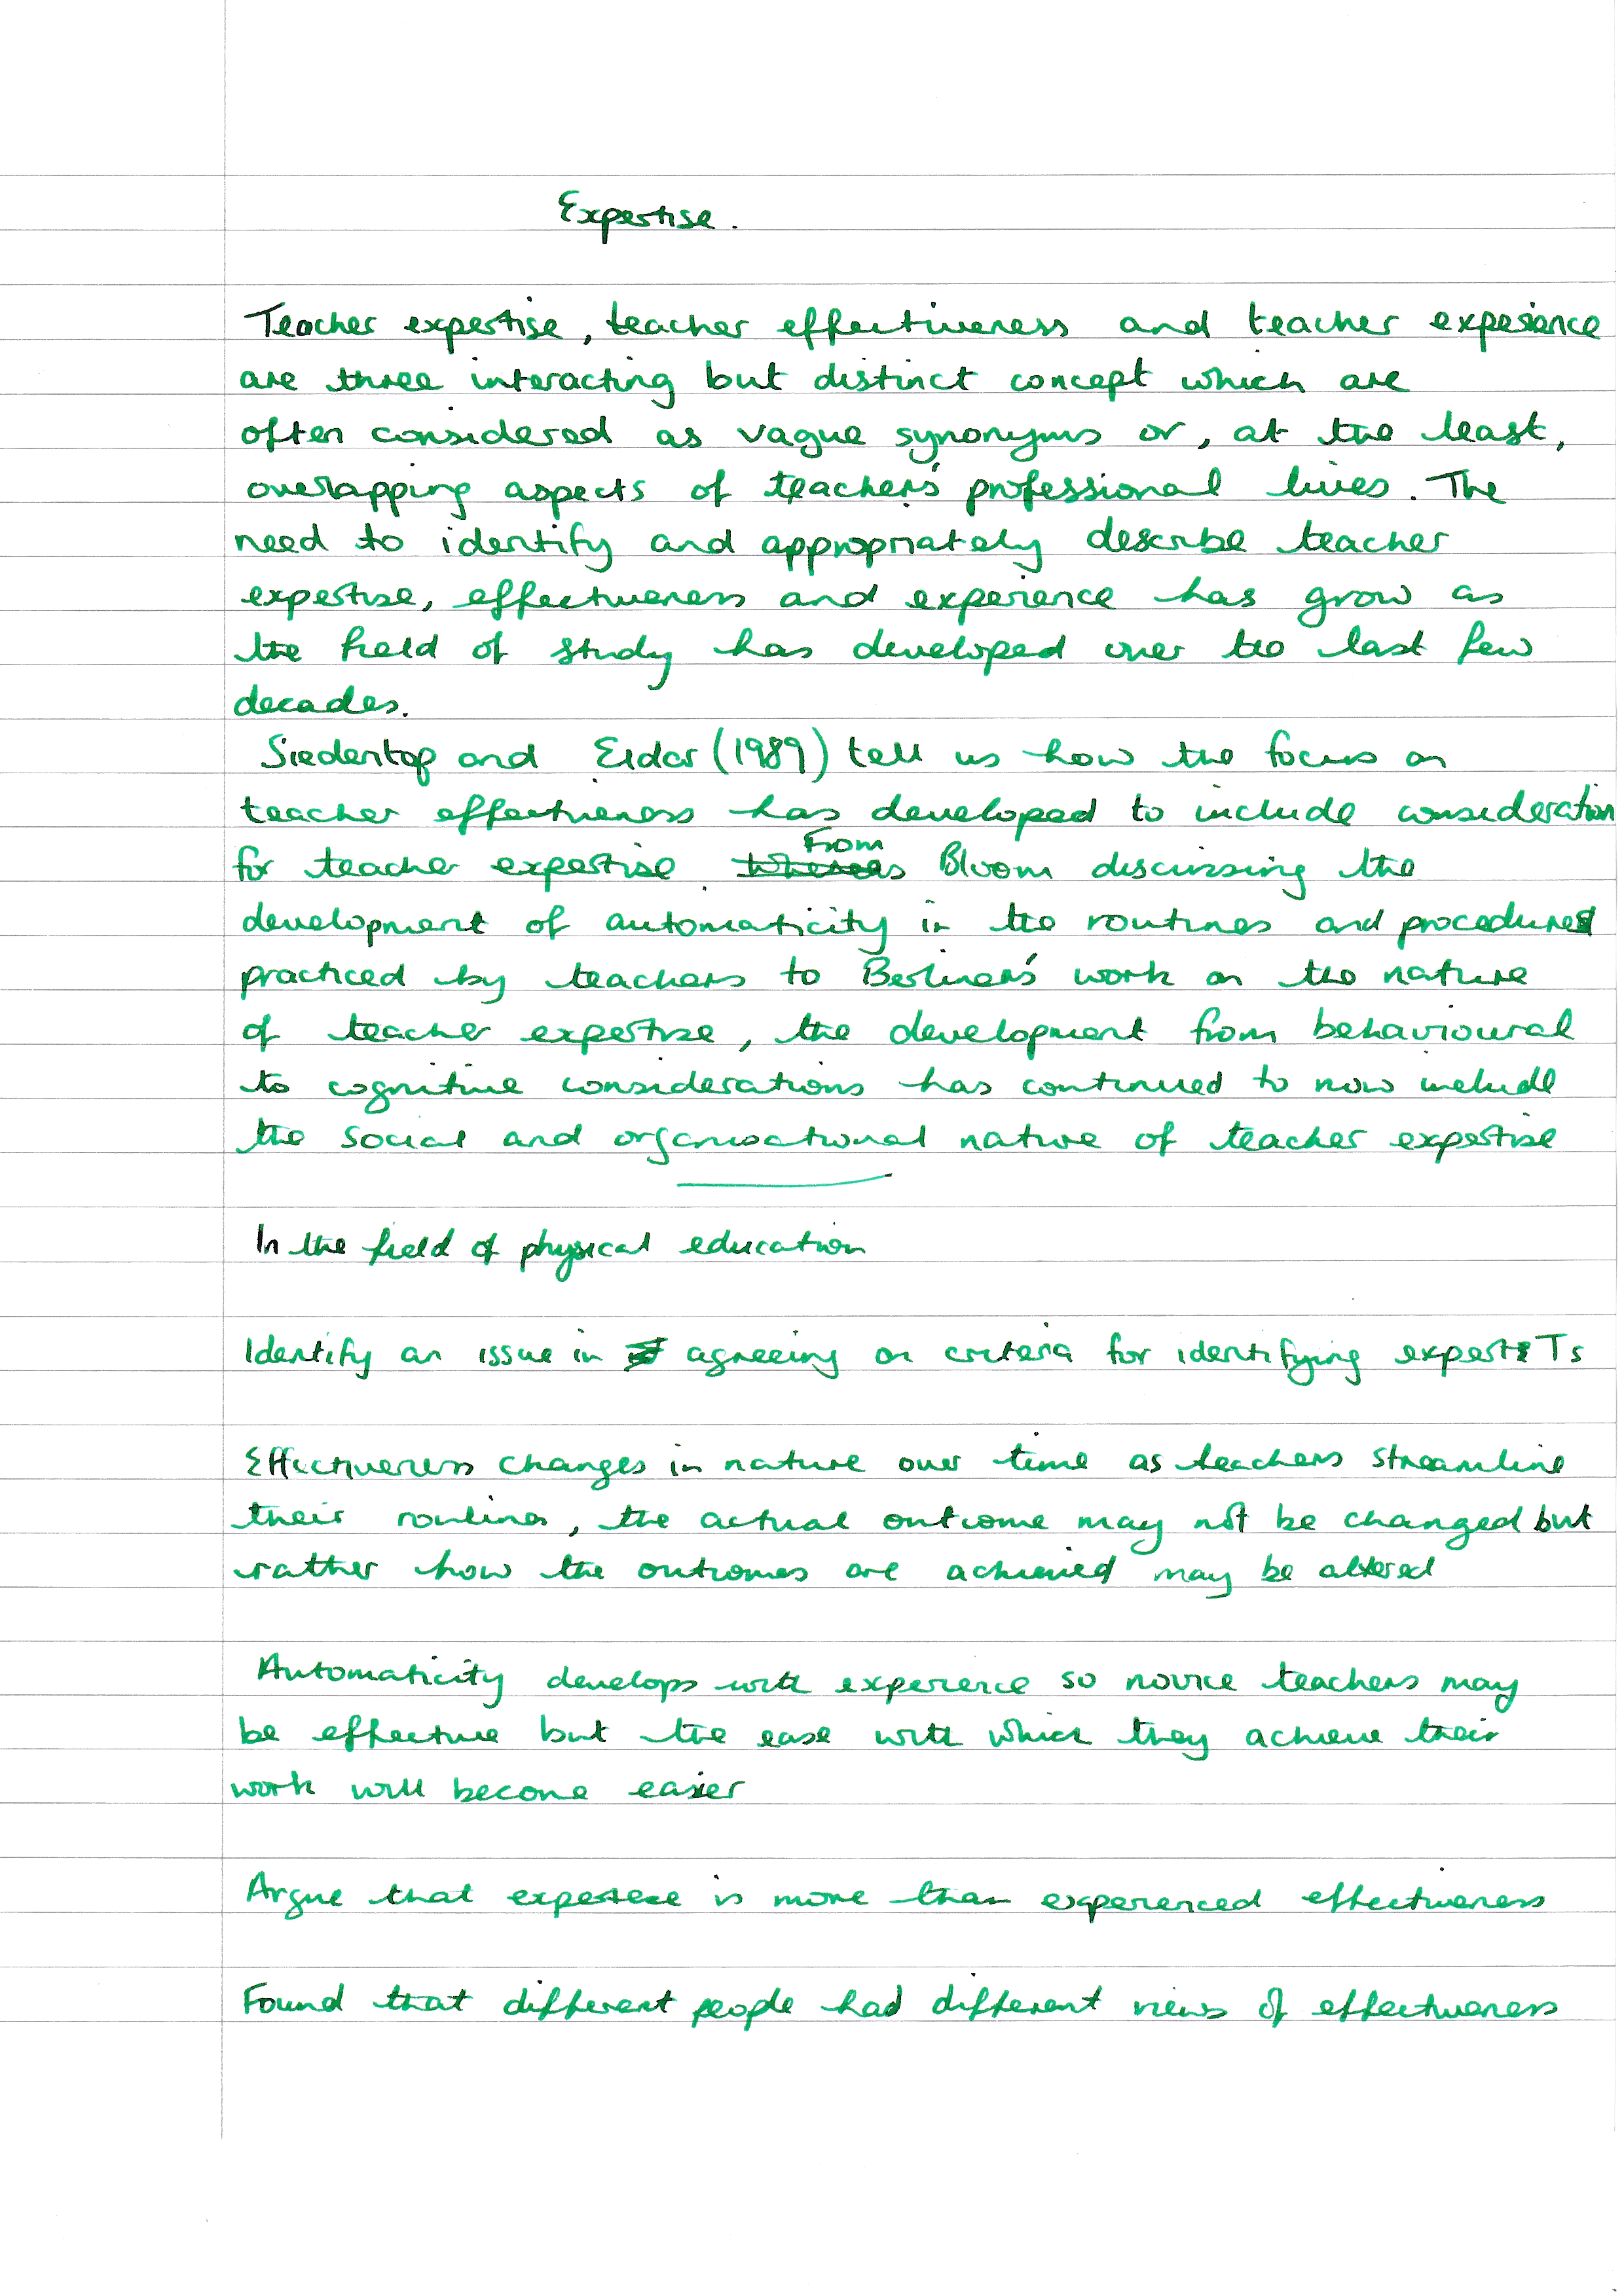 Expertise.
Teacher expertise, teacher effectiveness and teacher experience
are three interacting but distinct concept which are
often considered as vague synonyms or, at the least,
overlapping aspects of teacher's professional lives. The
need to identify and appropriately describe teacher
expertise, effectiveness and experience has grow as
the field of study has developed over the last few
decades.
Siedentop and Eldar (1989) tell us how the focus on
teacher effectiveness has developed to include consideration
for teacher expertise. From
whereas Bloom discussing the
development of automaticity in the routines and procedures
practiced by teachers to Berliner's work on the nature
of teacher expertise, the development from behavioural
to cognitive considerations has continued to now include
the social and organisational nature of teacher expertise
In the field of physical education
Identify an issue in agreeing on criteria for identifying expert Ts
Effectiveness changes in nature over time as teachers streamline
their routines, the actual outcome may not be changed but
rather how the outcomes are achieved may be altered
Automaticity develops with experience so novice teachers may
be effective but the ease with which they achieve their
work will become easier
Argue that is more than experienced effectiveness
Found that different people had different views of effectiveness